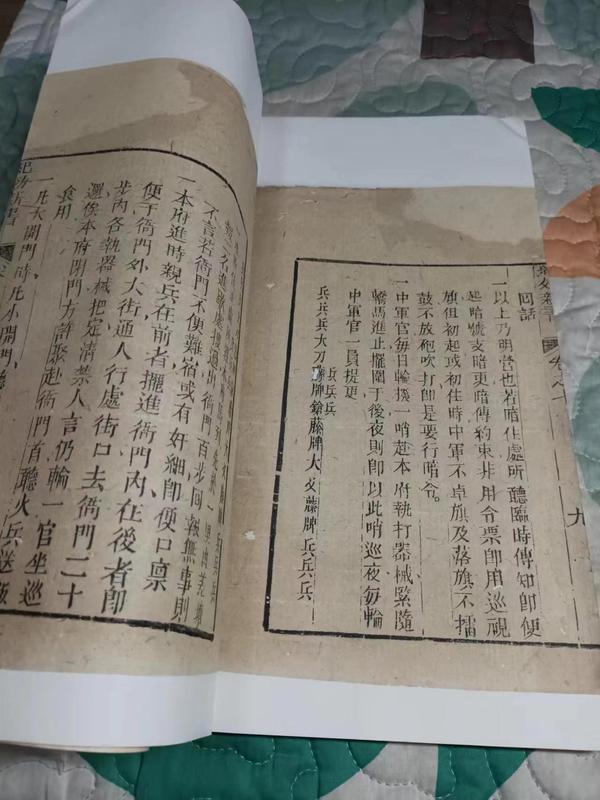 九
回話
一以上乃明營也若暗住處所聽臨時傳知即便
起暗號支暗更暗傳約束非用令票即用巡視
旗但初起或初住時中軍不卓旗及落旗不擂
鼓不放砲吹打即是要行暗令
一中軍官每日輪撥一哨赴本府執打器械緊隨
轎馬進止擺圍于後夜則即以此哨巡夜每輪
中軍官一員提更
兵兵兵
兵兵兵大刀牌鎗藤牌大叉藤牌兵兵兵
出衙門百步回報無事則
不言若衙門不便難省或有奸細即便口禀
一本府進時親兵在前者擺進衙門內在後者即
便于衙門外大街通人行處街口去衙門二十
步內各執器械把定清禁人言仍輪一官坐巡
邏俟本府閉門方許聚赴衙門首聽火兵送飯
食用
一凡大開門時凡小開門